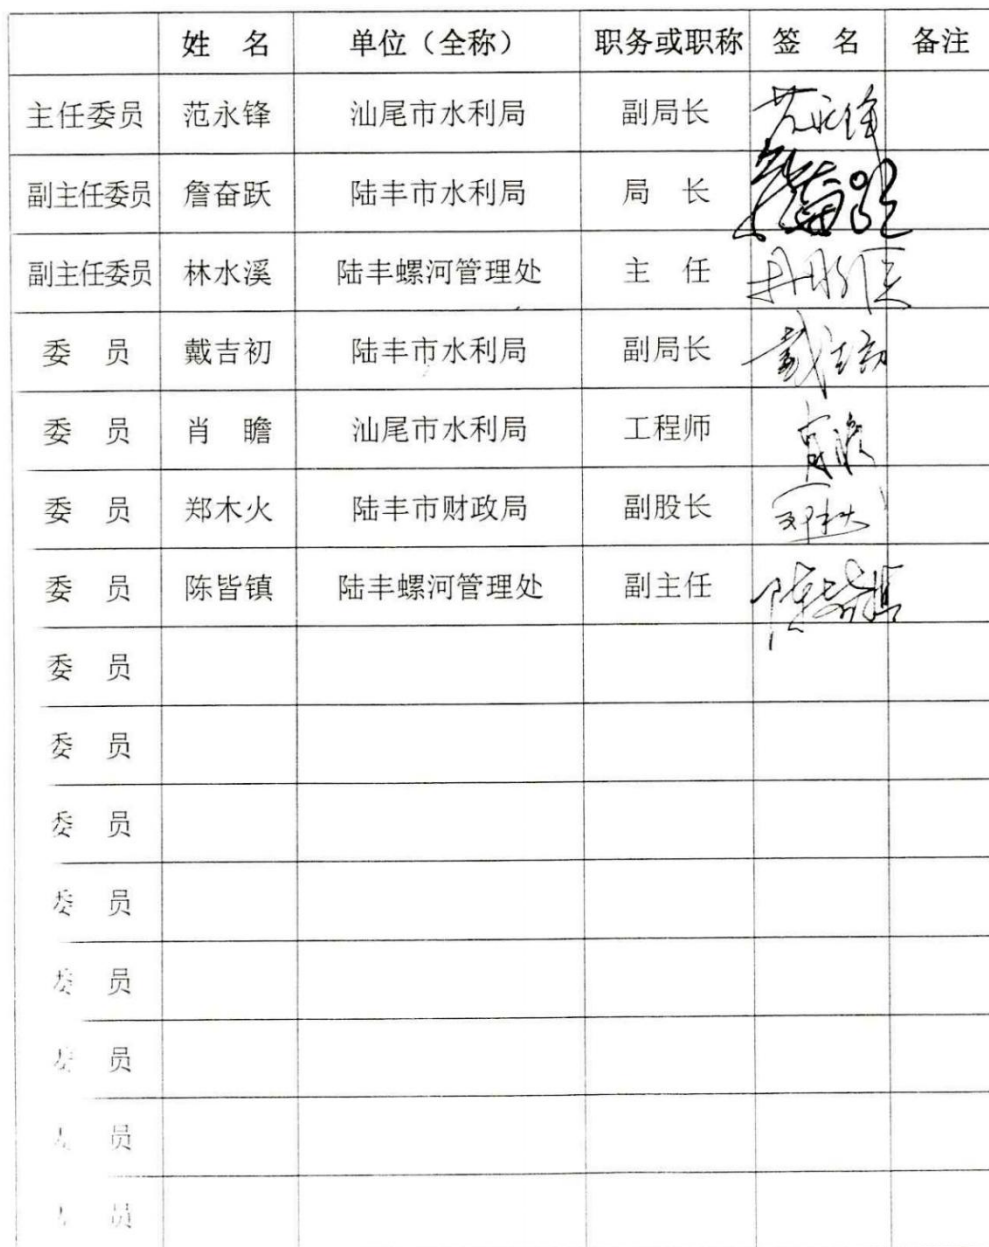 姓 名 单位（全称） 职务或职称 签 名 备注
主任委员 范永锋 汕尾市水利局 副局长 范永锋
副主任委员 詹奋跃 陆丰市水利局 局 长 詹奋跃
副主任委员 林水溪 陆丰螺河管理处 主 任
委 员 戴吉初 陆丰市水利局 副局长 戴吉初
委 员 肖 瞻 汕尾市水利局 工程师 肖瞻
委 员 郑木火 陆丰市财政局 副股长
委 员 陈皆镇 陆丰螺河管理处 副主任
委 员
委 员
委 员
委 员
委 员
委 员
员
员